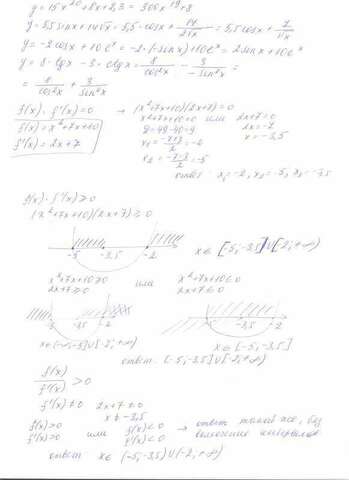 y = 15x²⁰ + 8x + 8,3 = 300x¹⁹ + 8
y = 5,5sinx + 14√x = 5,5·cosx + 14/2√x = 5,5cosx + 7/√x
y = -2cosx + 10eˣ = -2·(-sinx) + 10eˣ = 2sinx + 10eˣ
y = 8·tgx - 3·ctgx = 8/cos²x - 3/-sin²x =
= 8/cos²x + 3/sin²x
f(x)·f'(x) = 0 → (x²+7x+10)(2x+7)=0
f(x) = x²+7x+10 x²+7x+10=0 или 2x+7=0
f'(x) = 2x+7 D=49-40=9 2x=-7
x₁ = -7+3/2 = -2 x=-3,5
x₂ = -7-3/2 = -5
ответ x₁=-2, x₂=-5, x₃=-3,5
f(x)·f'(x) ≥ 0
(x²+7x+10)(2x+7) ≥ 0
-5 -3,5 -2 x∈[-5;-3,5]U[-2;+∞)
x²+7x+10≥0 или x²+7x+10≤0
2x+7≥0 2x+7≤0
-5 -3,5 -2 -5 -3,5 -2
x∈[-5;-3,5]
ответ: [-5;-3,5]U[-2;+∞)
f(x)/f'(x) > 0
f'(x)≠0 2x+7≠0
x≠-3,5
f(x)>0 или f(x)<0 → ответ такой же, без
f'(x)>0 f'(x)<0 включения
ответ x∈(-5;-3,5)U(-2;+∞)